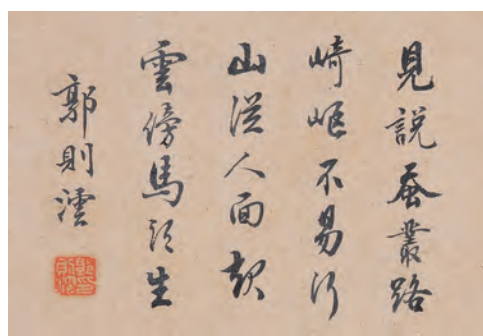 見説蚕叢路
崎岖不易行
山從人面起
雲傍馬頭生
郭則澐